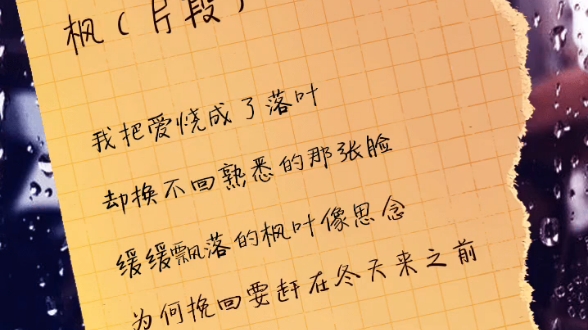 枫(片段)
我把爱烧成了落叶
却换不回熟悉的那张脸
缓缓飘落的枫叶像思念
为何挽回要赶在冬天来之前